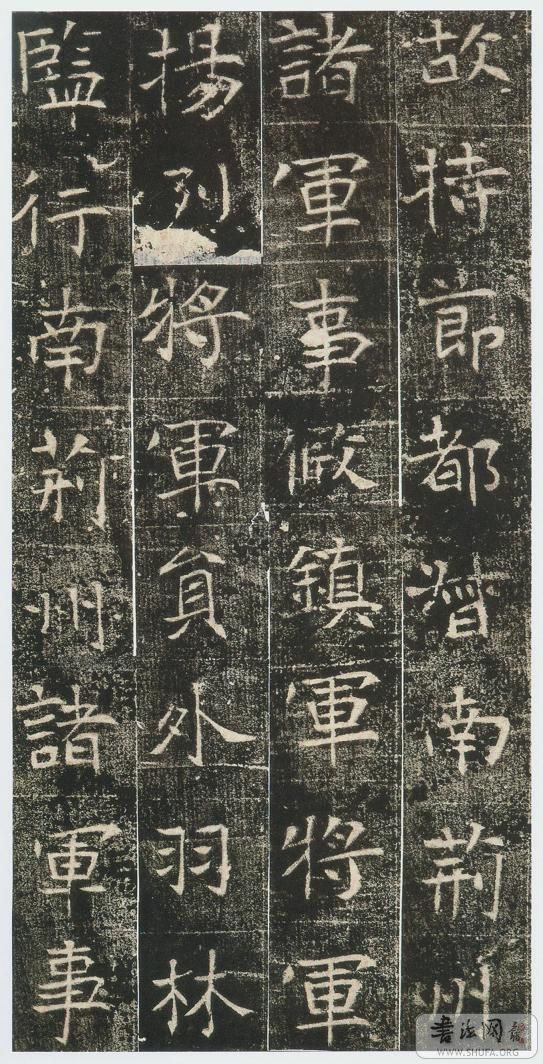 故特節都督南荊州
諸軍事假鎮軍將軍
揚列將軍員外羽林
監行南荊州諸軍事
書法网
WWW.SHUFA.ORG